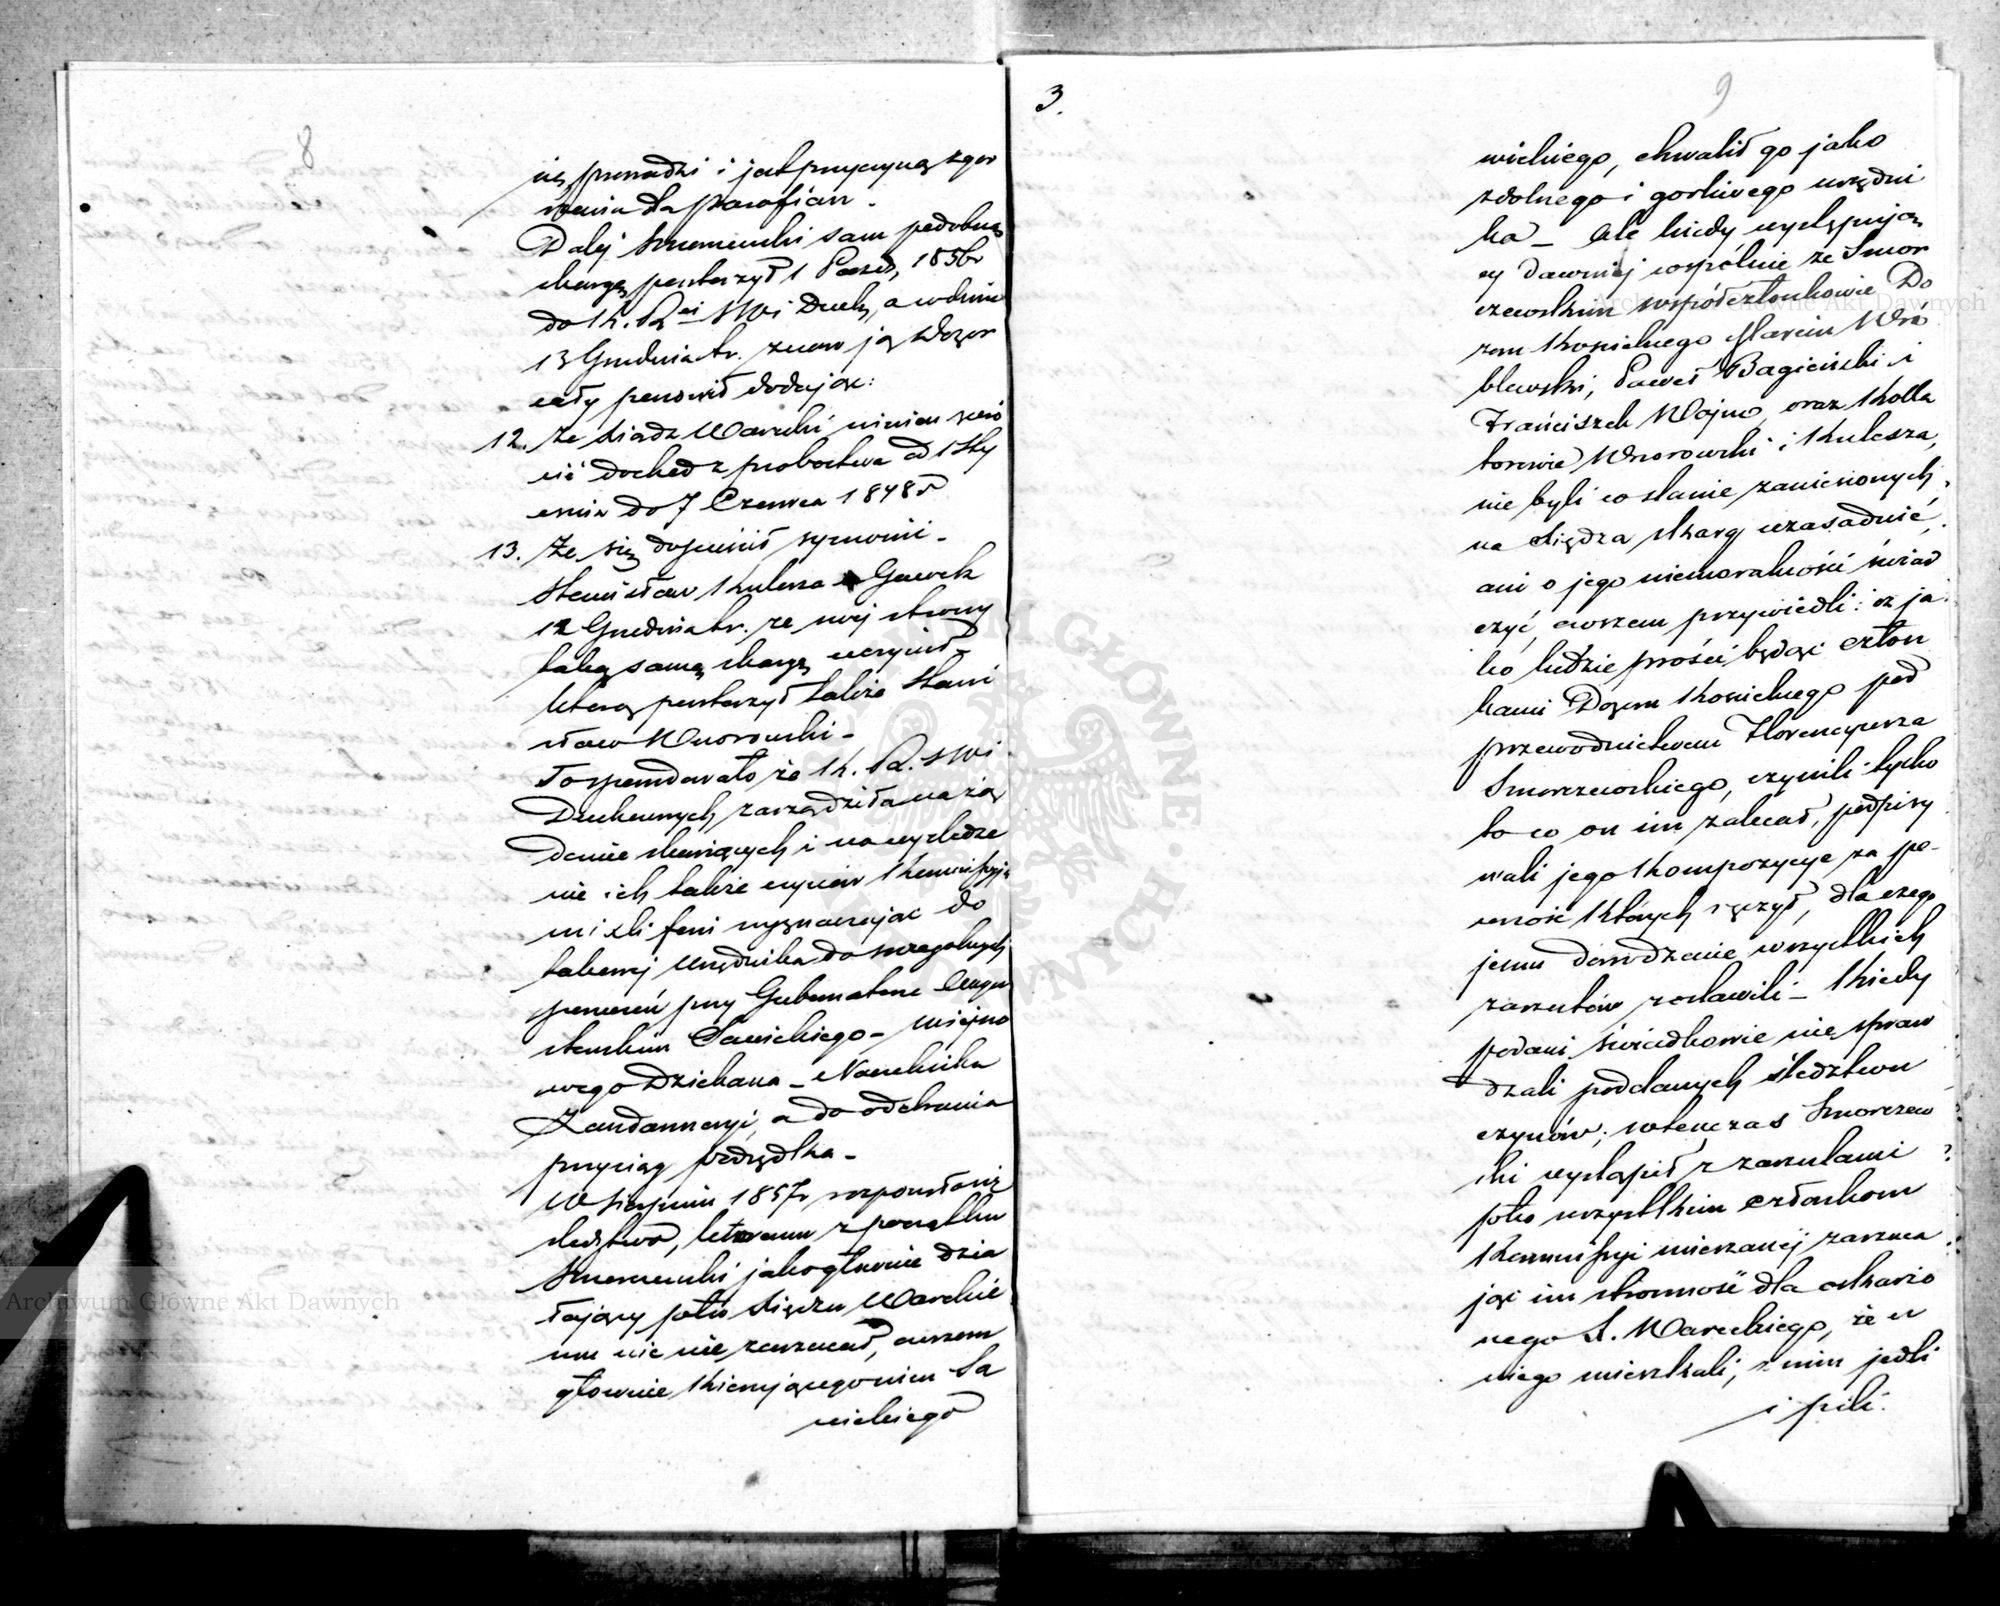 8
się prowadzi i jest przyczyną zgor
szenia dla parafian.
Dalej Smorczewski sam podobną
skargę powtórzył 1 Paźd, 1856r
do K. R. SWi Duch, a w dniu
13 Grudnia t.r. znów ją Dozór
cały ponowił dodając:
12. że Xiądz Warecki winien zwró
cić dochód z probostwa od 1 Sty
cznia do 7 Czerwca 1848 r
13. że się dopuścił symonii –
Stanisław Kulesza Gawek
12 Grudnia t.r. ze swej strony
taką samą skargę uczynił
którą powtórzył także Stani
sław Wnorowski –
To spowodowało że K. R. SWi
Duchownych zarządziła na żą
danie skarżących i na wyśledze
nie ich także czynów Kommissyją
mixti fori wyznaczając do
takowej Urzędnika do szczególnych
poruczeń przy Gubernatorze Augu
stowskim Sawickiego – miejsco
wego Dziekana – Naczelnika
Żandarmeryi, a do odebrania
przysiąg podsędka –
W Sierpniu 1857r rozpoczęło się
śledztwo, któremu z początku
Smorczewski jako głównie dzia
łający podko Xiędzu Wareckie
mu nic nie zarzucał, owszem
głównie kierującego niem Sa
wickiego
3.
9
wickiego, chwalił go jako
zdolnego i gorliwego urzędni
ka – Ale kiedy występują
cy dawniej wspólnie ze Smor
czewskim współczłonkowie Do
zoru Kościelnego Marcin Wró
blewski, Paweł Bagieński i
Franciszek Wojno, oraz Kolla
torowie Wnorowski i Kulesza,
nie byli w stanie zaniesionych
na Xiędza skarg uzasadnić,
ani o jego niemoralności świad
czyć, owszem przywiedli: iż ja
ko ludzie prości będąc człon
kami Dozoru Kościelnego pod
przewodnictwem Florencyusza
Smorczewskiego, czynili tylko
to co on im zalecał, podpisy
wali jego kompozycye za pe-
wność których ręczył, dla czego
jemu dowodzenie wszystkich
zarzutów zostawili – Kiedy
podani świadkowie nie spraw
dzali poddanych śledztwu
czynów; wtenczas Smorczew
ski wystąpił z zarzutami
pko wszystkim członkom
Kommissyi mieszanej zarzuca
jąc im stronność dla oskarżo
nego X. Wareckiego, że u
niego mieszkali, z nim jedli
i pili.
Archiwum Główne Akt Dawnych
Archiwum Główne Akt Dawnych